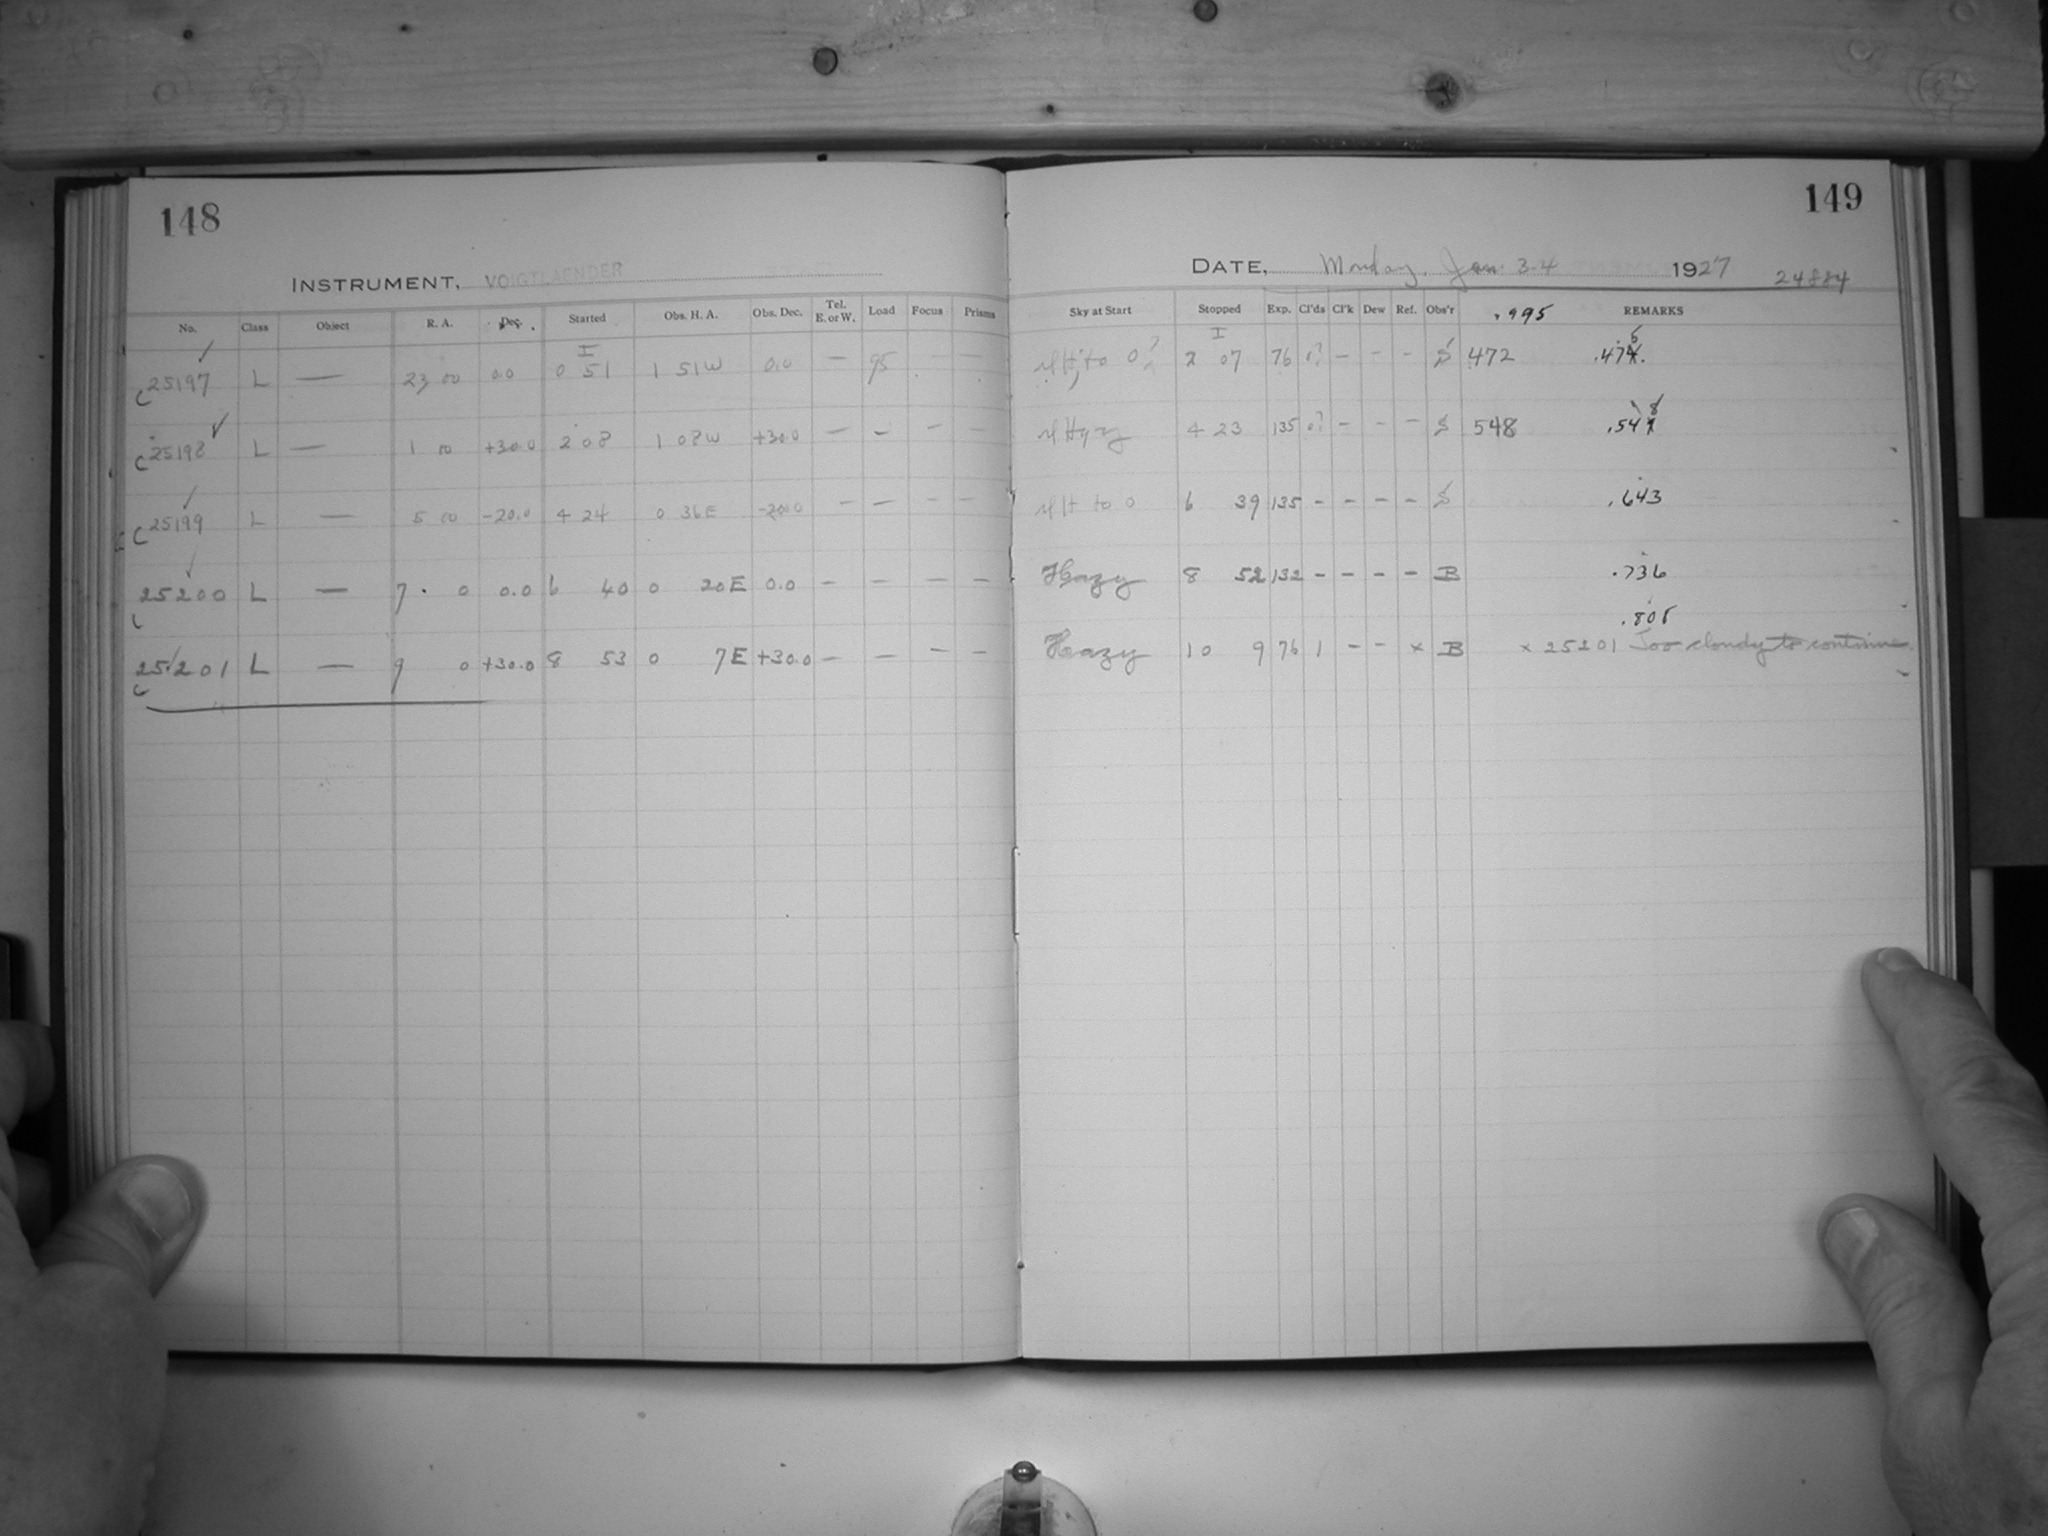 148
INSTRUMENT, VOIGTLAENDER
No. Class Object R. A. Dec. Started Obs. H. A. Obs. Dec. Tel. E. or W. Load Focus Prisms
I
C 25197 L — 23 00 0.0 0 51 1 51 W 0.0 — 95
C 25198 L — 1 00 +30.0 2 08 1 08 W +30.0 — — — —
C 25199 L — 5 00 -20.0 4 24 0 36 E -20.0 — — — —
C 25200 L — 7 0 0.0 6 40 0 20 E 0.0 — — — —
C 25201 L — 9 0 +30.0 8 53 0 7 E +30.0 — — — —
149
DATE, Monday, Jan. 3-4 1927 24884
Sky at Start Stopped Exp. Cl'ds Cl'k Dew Ref. Obs'r .995 REMARKS
I
to 0? 2 07 76 0? - - - S 472 .476
4 23 135 0? - - - S 548 .548
to 0 6 39 135 - - - - S .643
Hazy 8 52 132 - - - - B .736
.805
Hazy 10 9 76 1 - - x B x 25201 Too cloudy to continue.